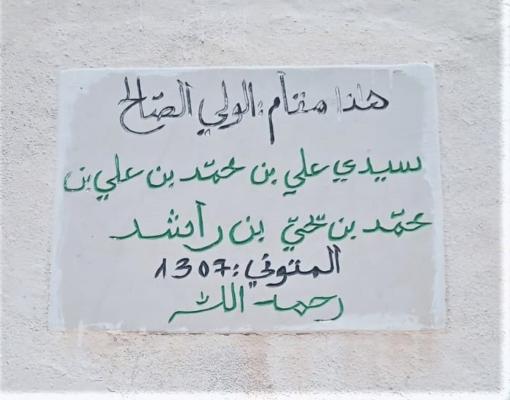 هذا مقام: الولي الصّالح
سيدي علي بن محمّد بن علي بن
محمّد بن يحيّ بن راشد
المتوفي: 1307
رحمه الله